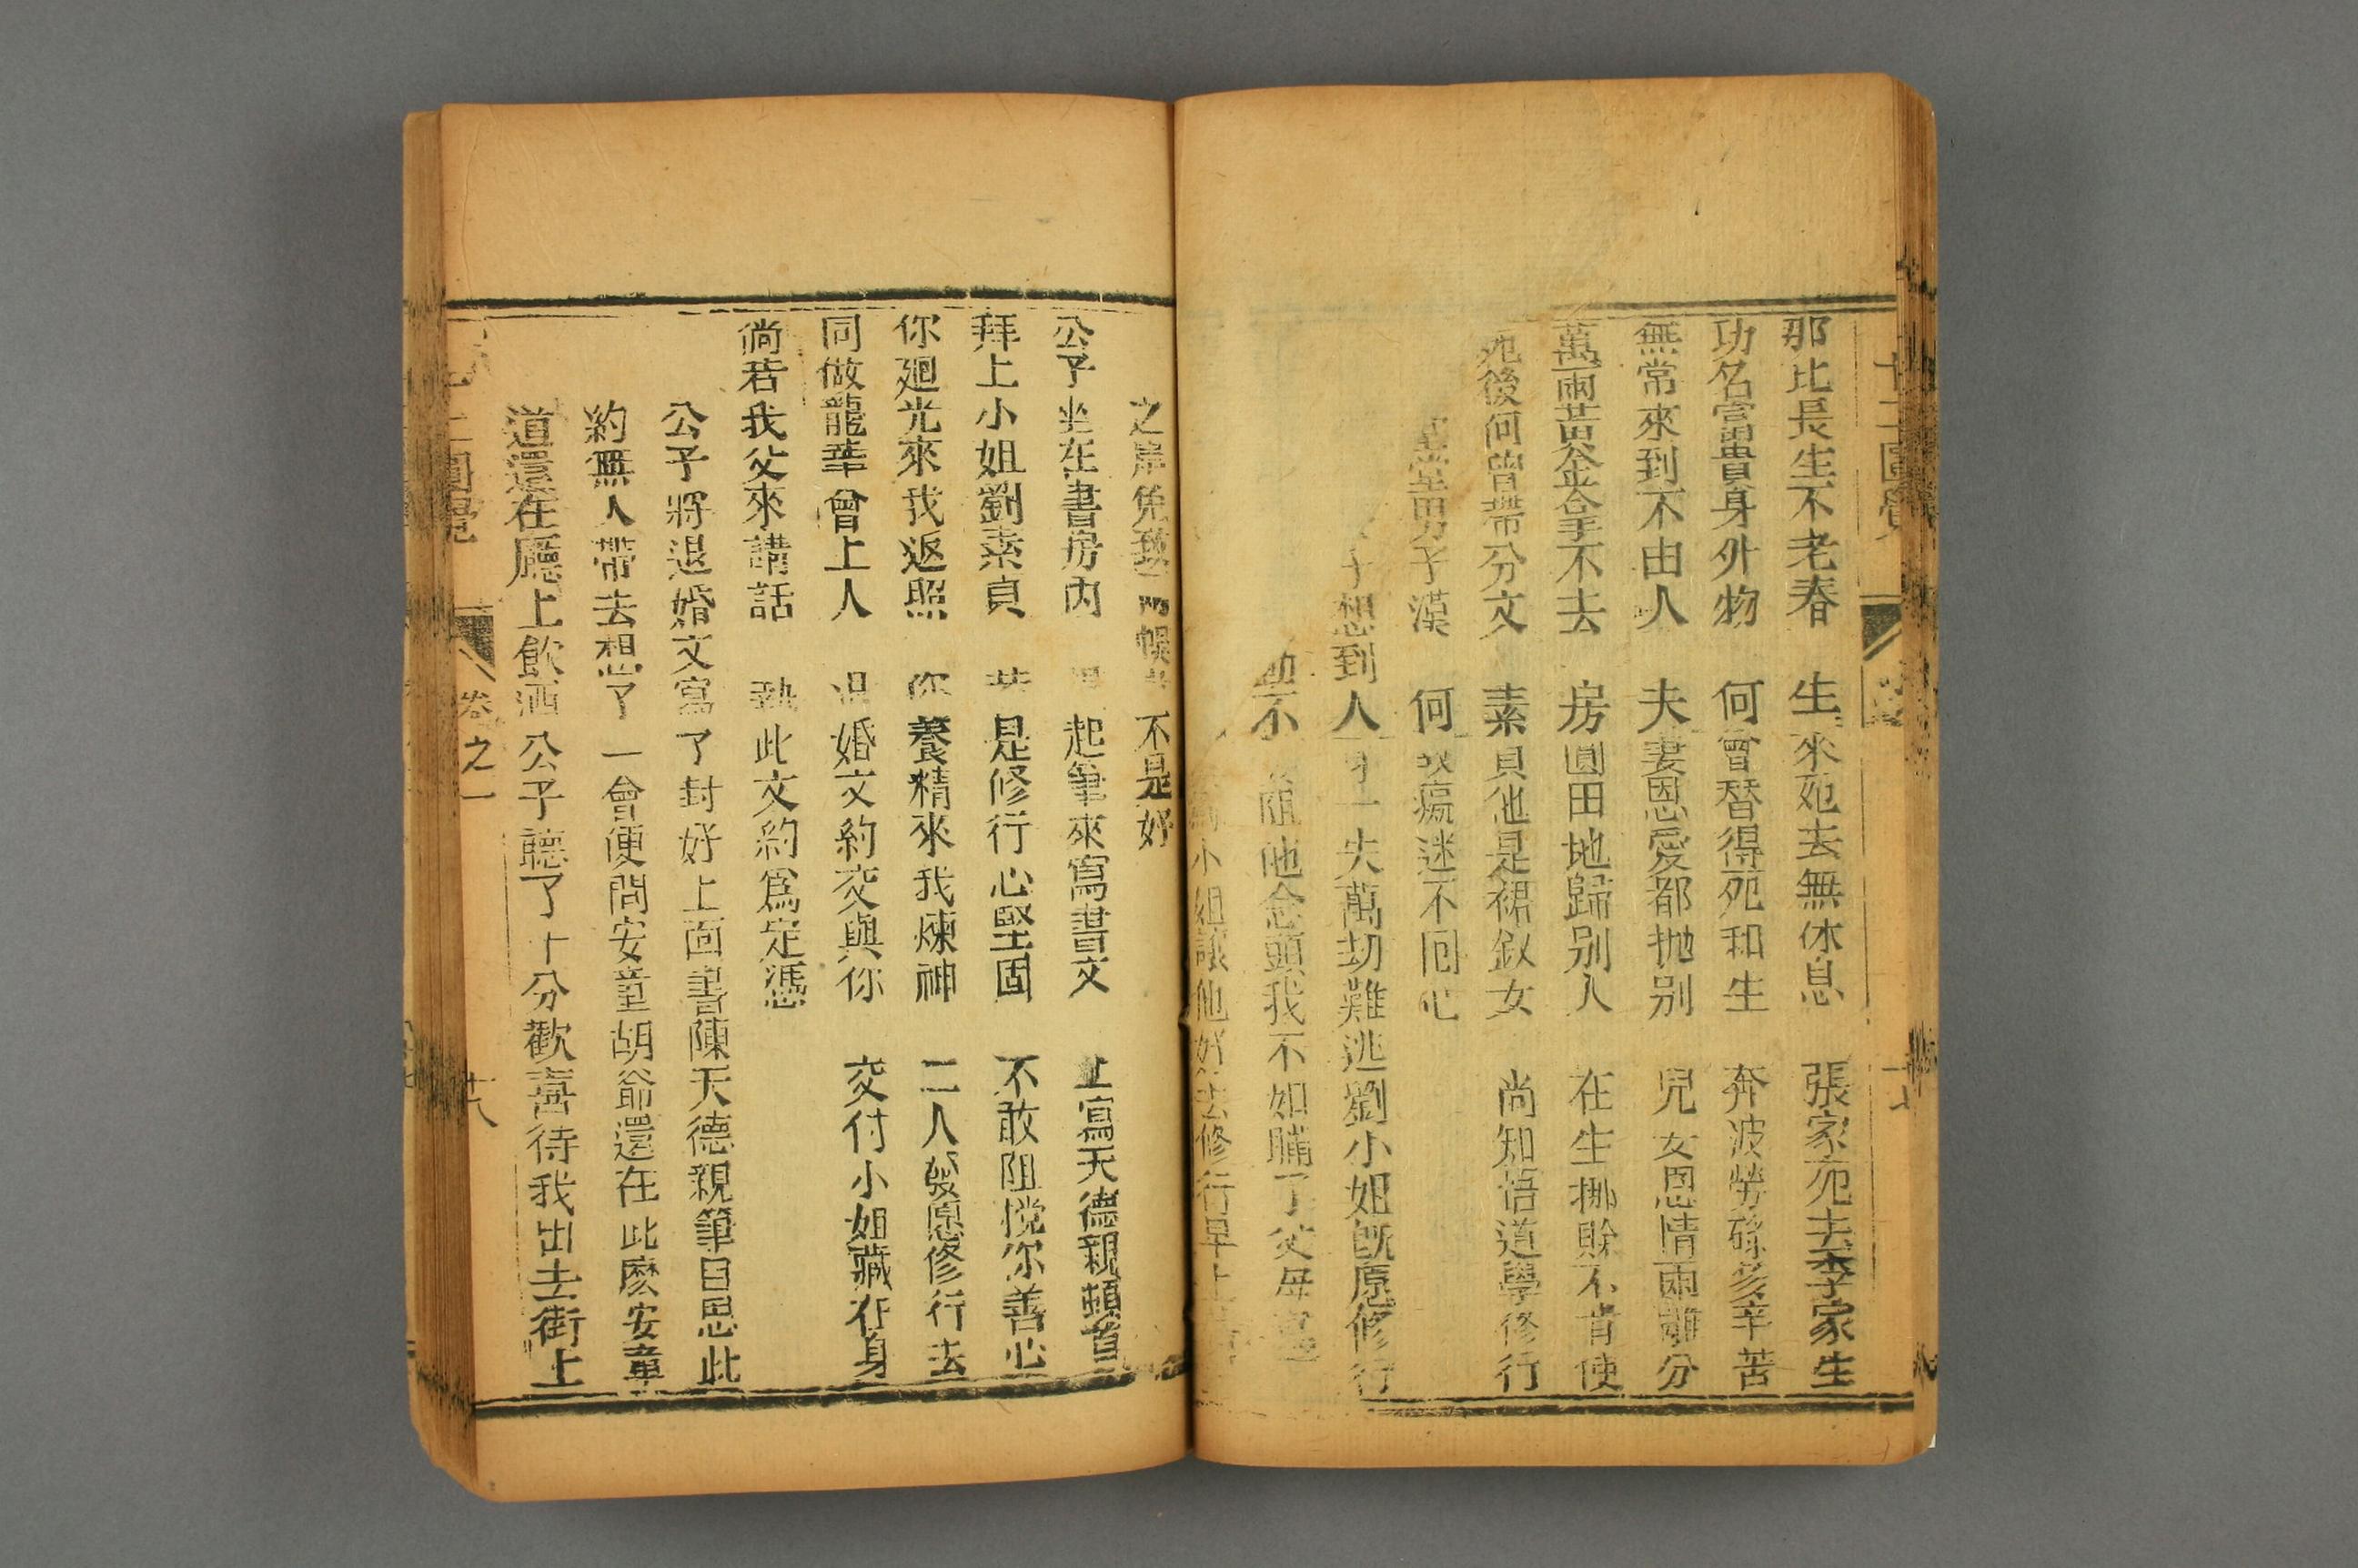 十二圓覺
那比長生不老春 生來死去無休息 張家死去李家生
功名富貴身外物 何曾替得死和生 奔波勞碌多辛苦
無常來到不由人 夫妻恩愛都抛别 兒女恩情兩離分
萬兩黃金拿不去 房圓田地歸别人 在生挪賒不肯使
死後何曾帶分文 素貞他是裙釵女 尚知悟道學修行
堂男子漢 何 迷不囘心
子想到人 一失萬劫難逃劉小姐旣愿修行
不 他念頭我不如瞞了父母寫
小姐讓他好去修行早上
之岸免致 悞 不是好
公子坐在書房內 起筆來寫書文 上寫天德親頓首
拜上小姐劉素貞 是修行心堅固 不敢阻攩你善心
你廻光來我返照 你養精來我煉神 二人發愿修行去
同做龍華會上人 退婚文約交與你 交付小姐藏在身
倘若我父來講話 執此文約爲定憑
公子將退婚文寫了封好上面書陳天德親筆自思此
約無人帶去想了一會便問安童胡爺還在此麽安童
道還在廳上飲酒公子聽了十分歡喜待我出去街上
十二圓覺 卷之一 十八